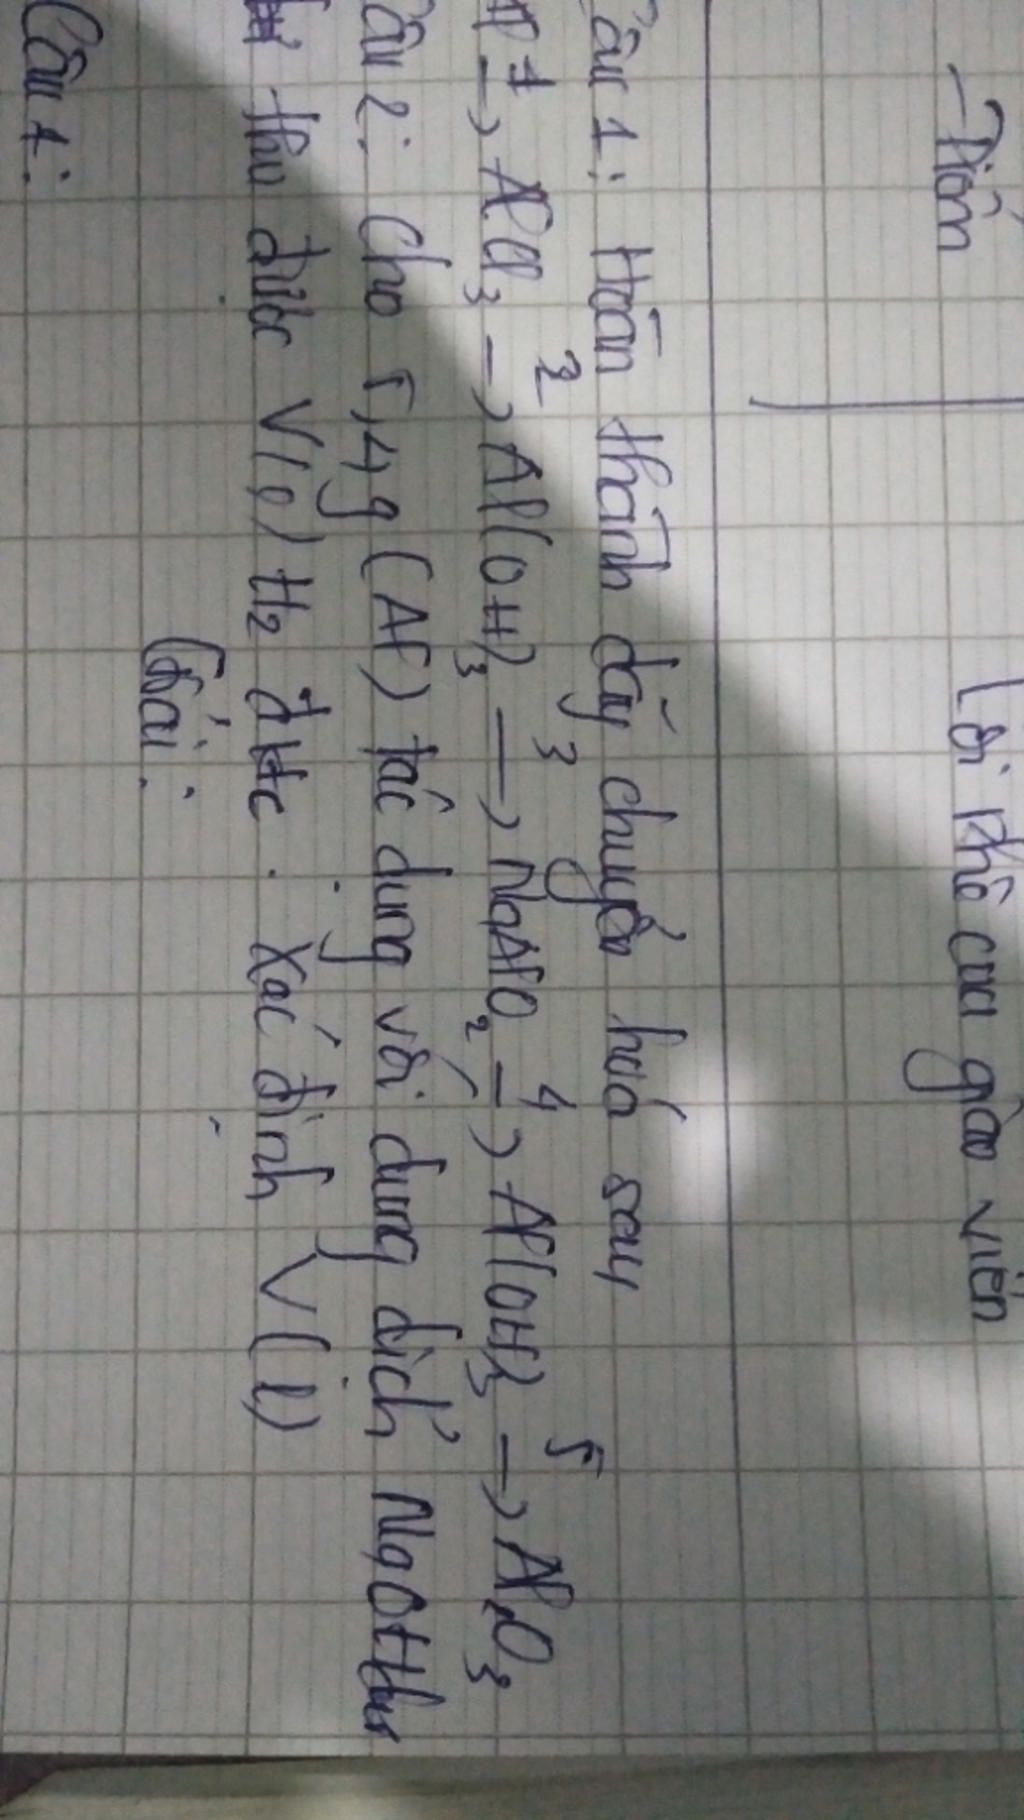 Điểm
Lời phê của giáo viên
Câu 1: Hoàn thành dãy chuyển hoá sau
Al -1-> AlCl3 -2-> Al(OH)3 -3-> NaAlO2 -4-> Al(OH)3 -5-> Al2O3
Câu 2: Cho 5,4g (Al) tác dụng với dung dịch NaOH thu
thu được V(l) H2 đktc. Xác định V(l)
Giải:
Câu 1: